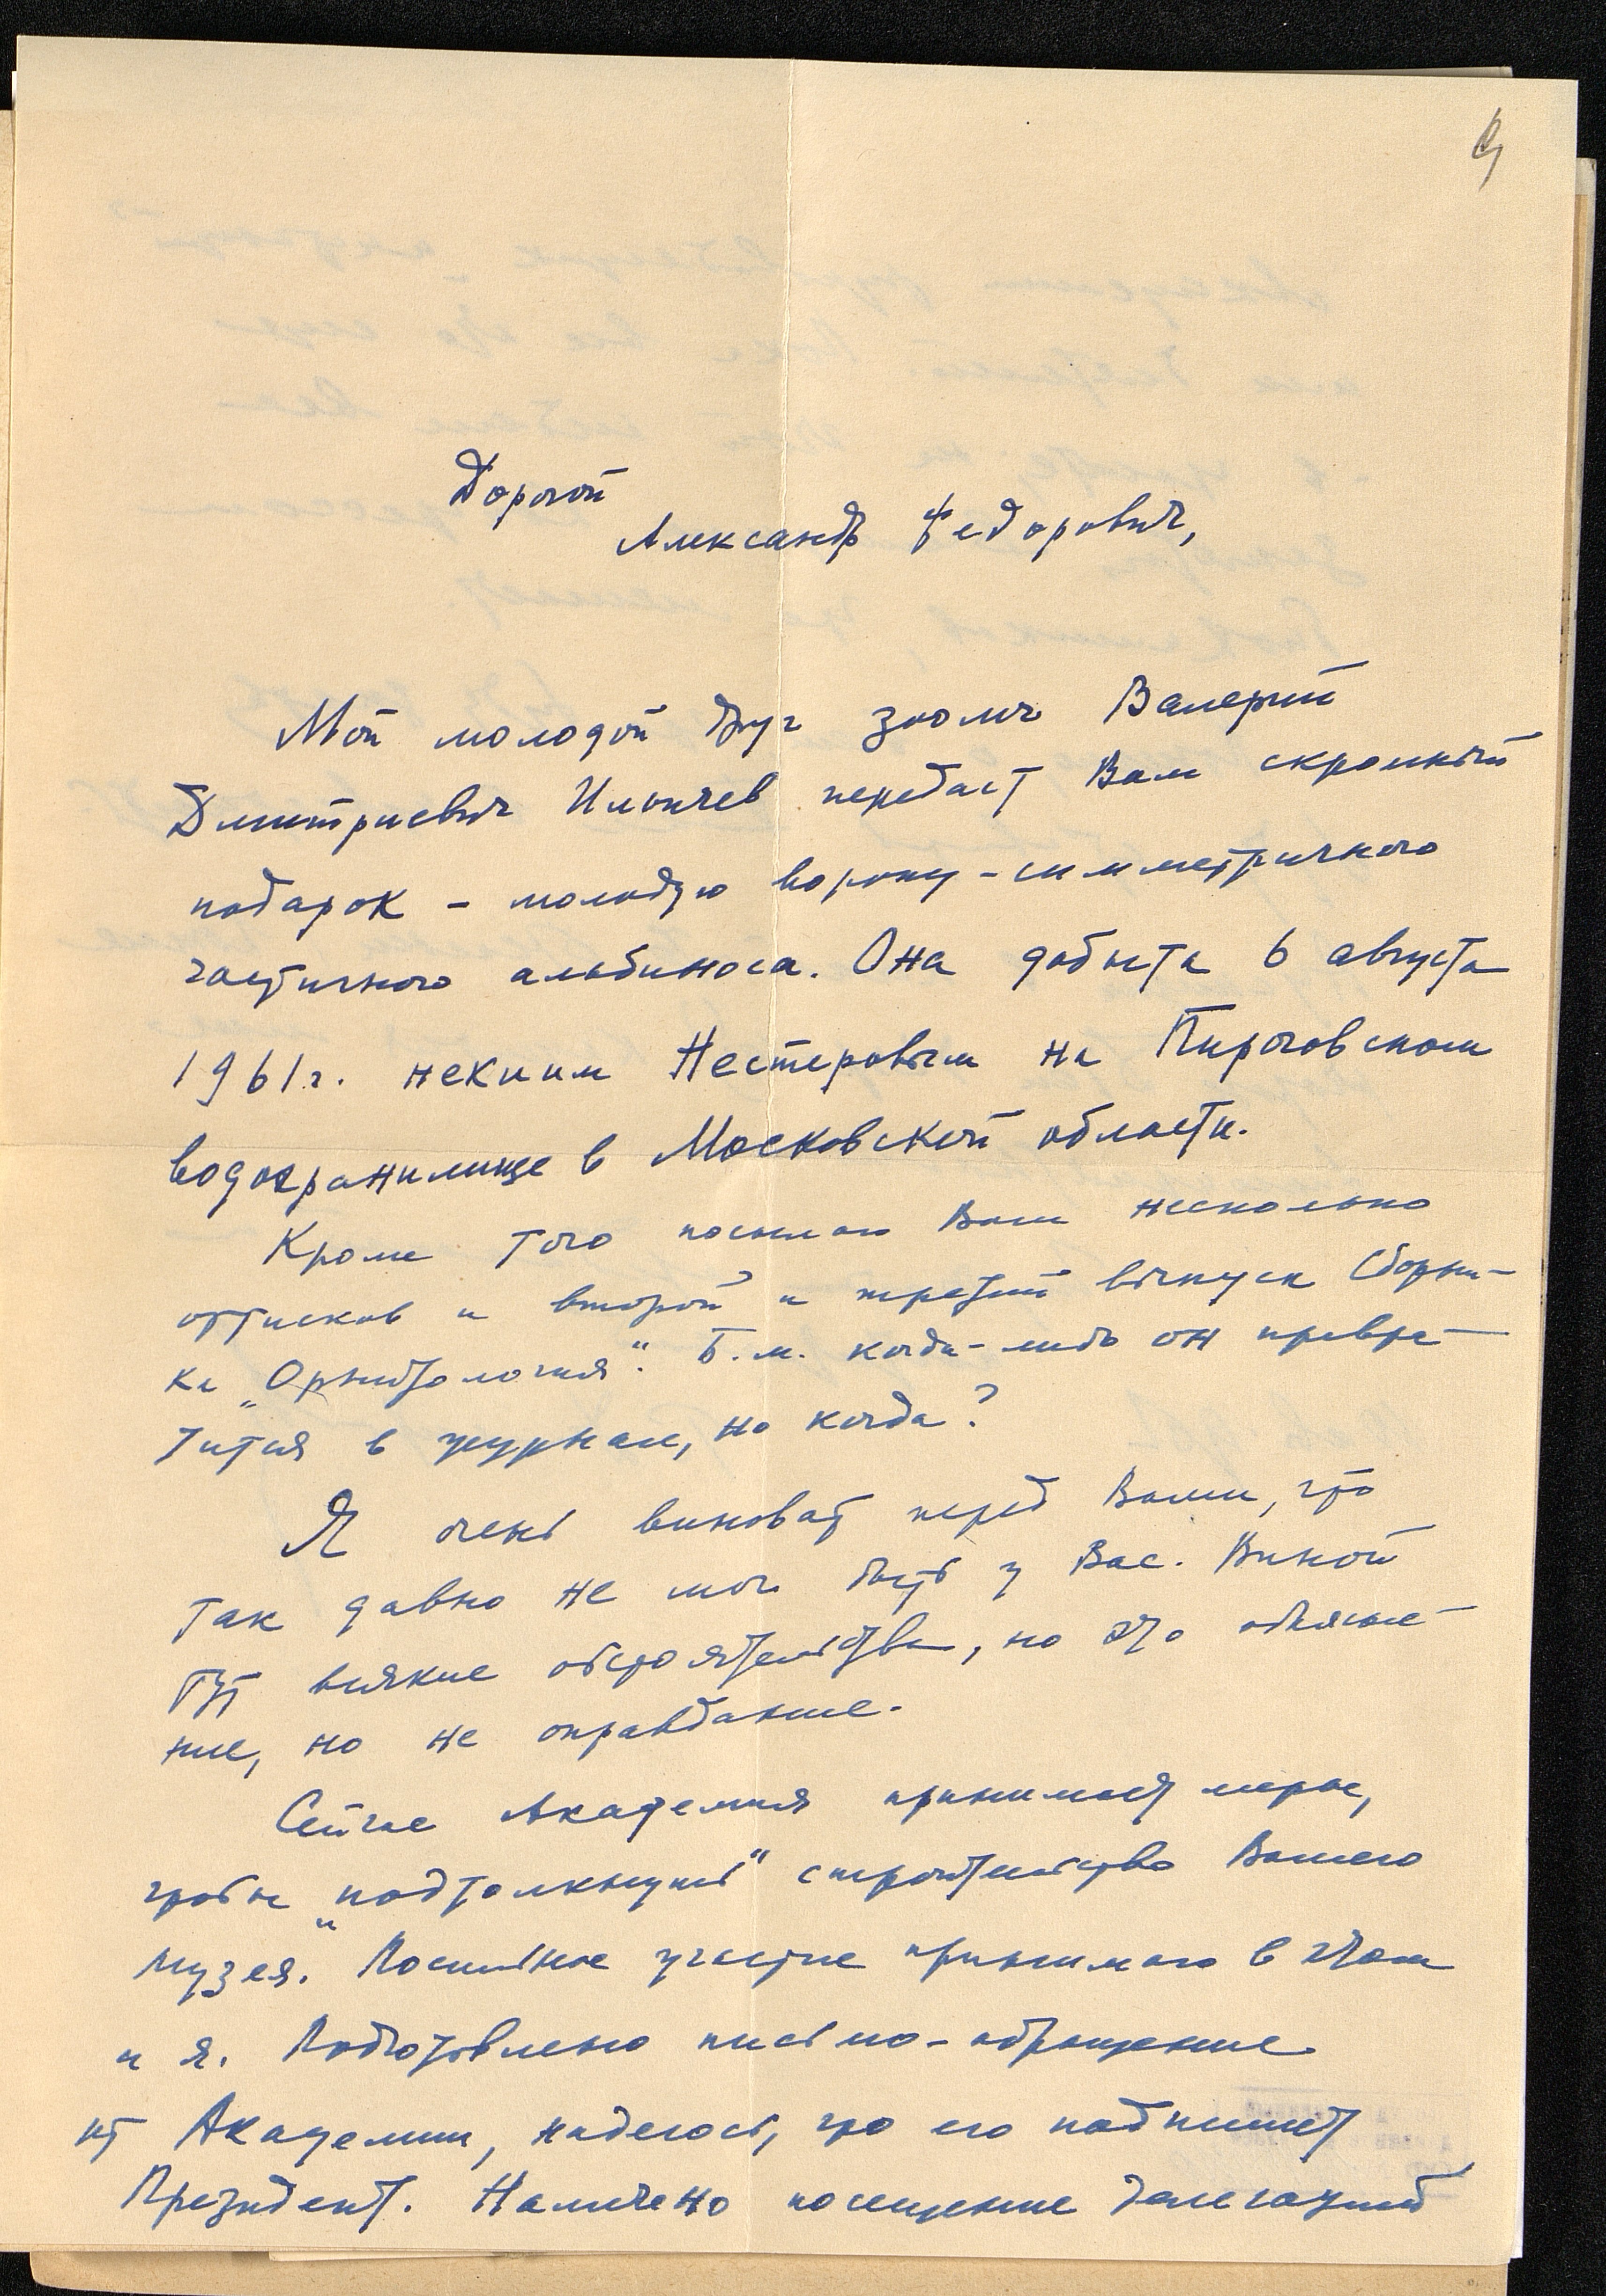 Дорогой
Александр Федорович,
Мой молодой друг зоолог Валерий
Дмитриевич Ильичев передаст Вам скромный
подарок - молодую ворону - симметричного
частичного альбиноса. Она добыта 6 августа
1961 г. некиим Нестеровым на Пироговском
водохранилище в Московской области.
Кроме того посылаю Вам несколько
оттисков и второй и третий выпуск Сборни-
ка „Орнитология“. Б.м. когда-либо он превра-
тится в журнал, но когда?
Я очень виноват перед Вами, что
так давно не мог быть у Вас. Виной
тут всякие обстоятельства, но это объясне-
ние, но не оправдание.
Сейчас Академия принимает меры,
чтобы „подтолкнуть“ строительство Вашего
музея. Посильное участие принимаю в этом
и я. Подготовлено письмо-обращение
от Академии, надеюсь, что его подпишет
Президент. Намечено посещение делегацией